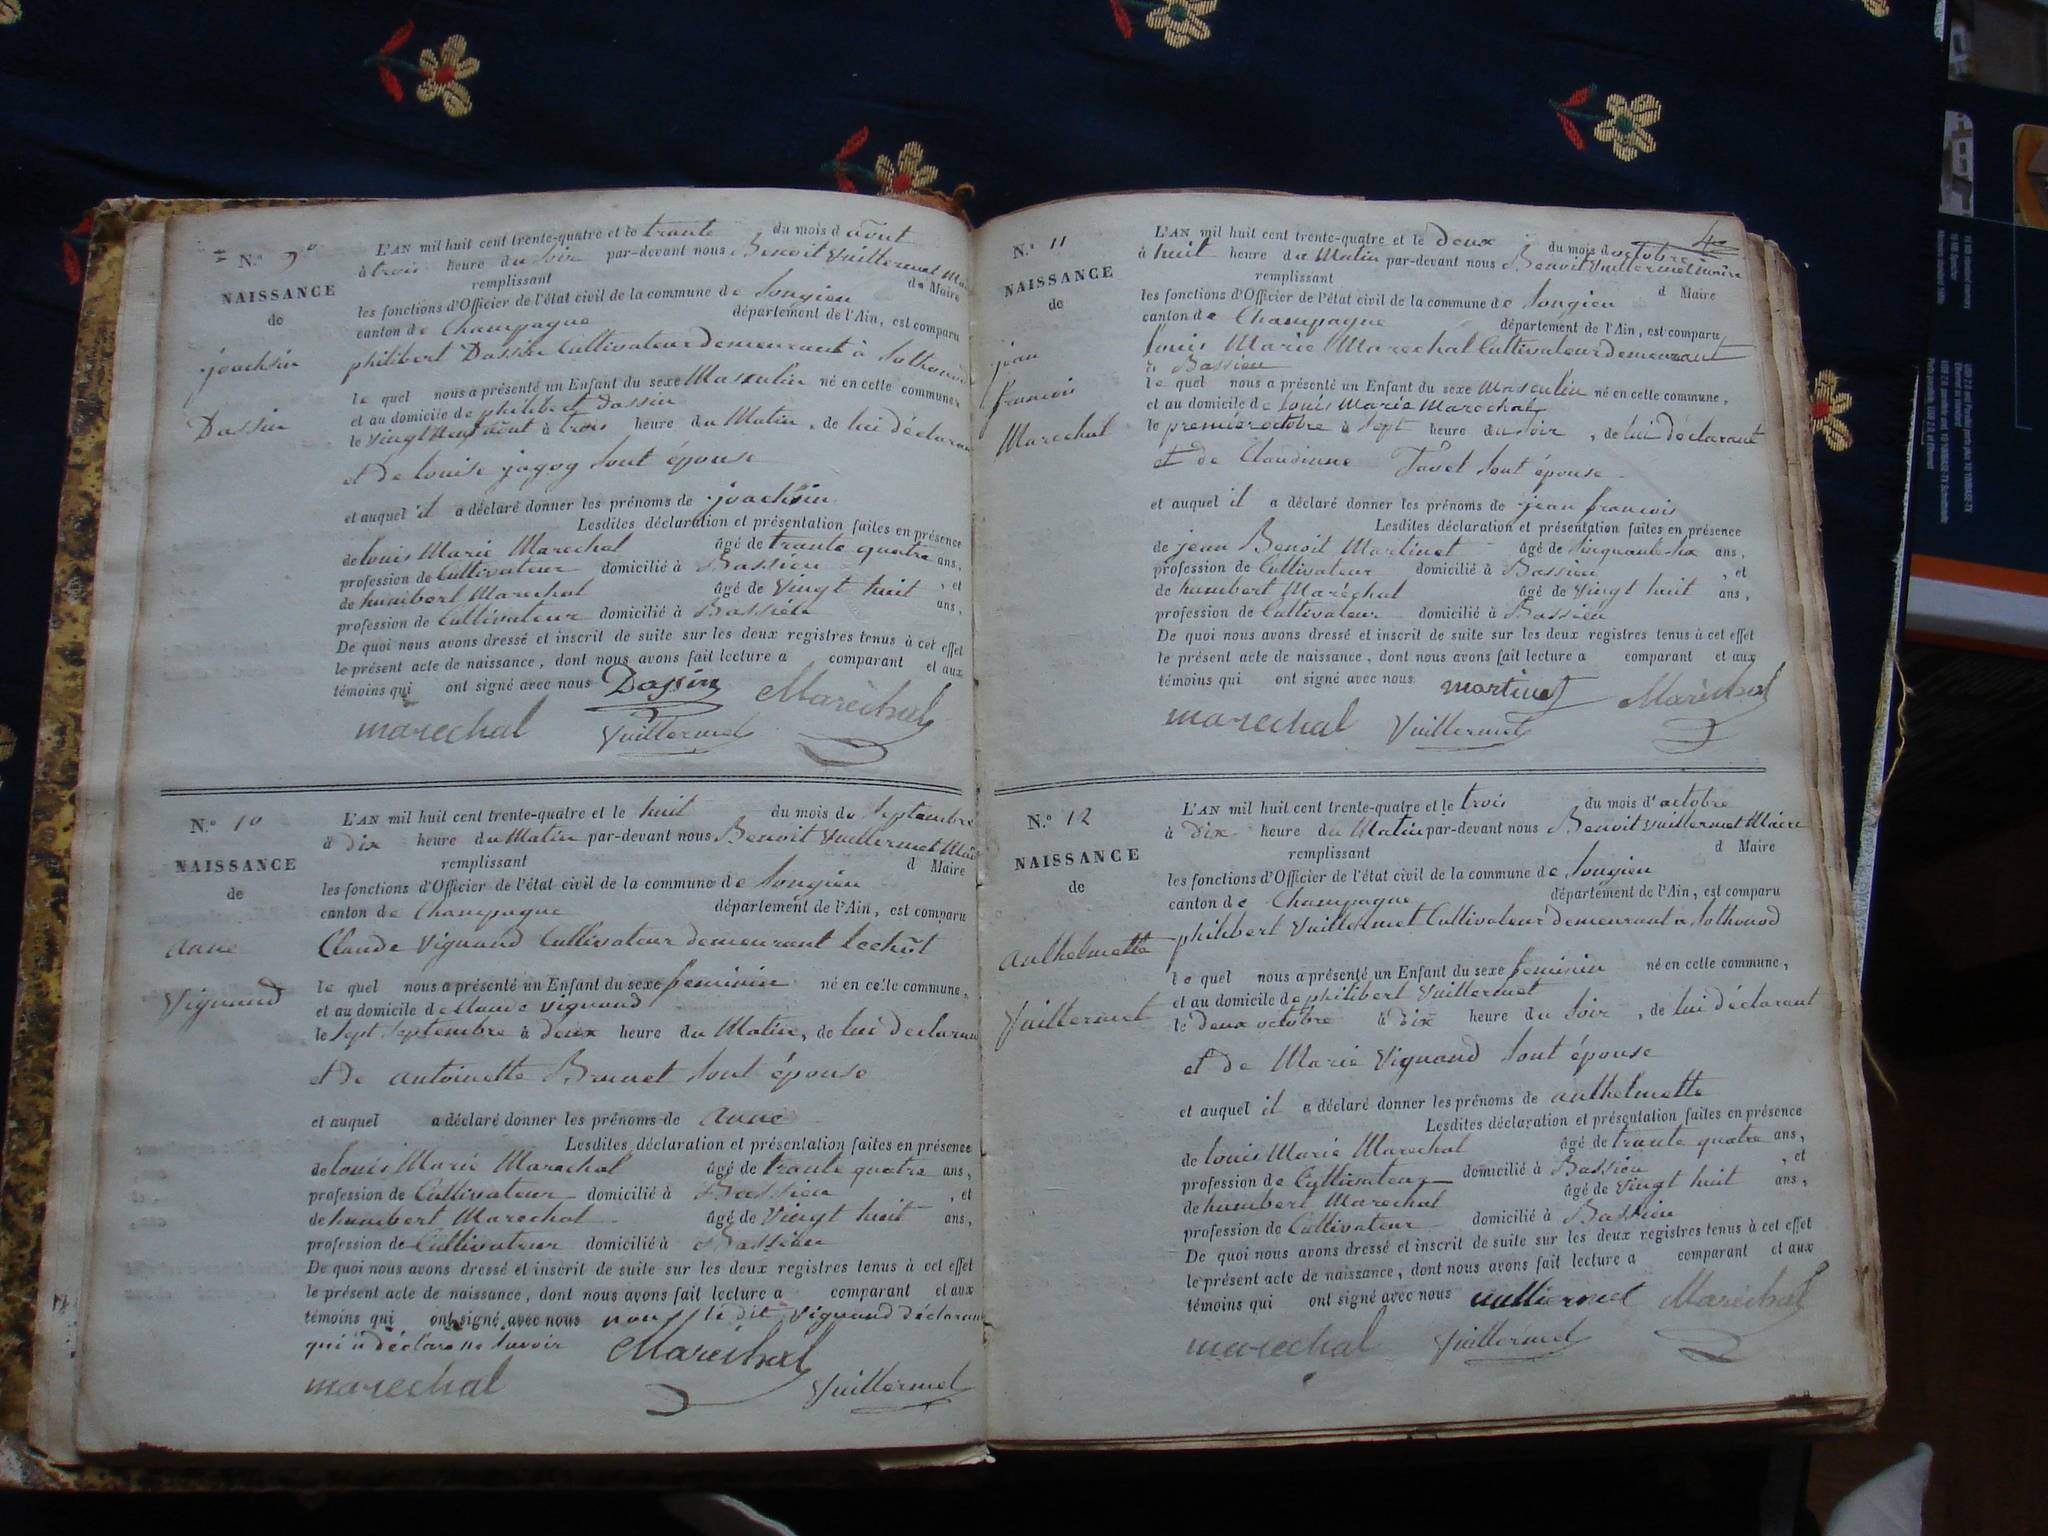 N.º 9º
NAISSANCE
de
joachim
Dassin
L'AN mil huit cent trente-quatre et le trante du mois d août
à trois heure du soir par-devant nous Benoit Vuillermet
remplissant d Maire
les fonctions d'Officier de l'état civil de la commune de Songieu
canton de Champagne département de l'Ain, est comparu
philibert Dassin Cultivateur demeurant à Sothonod
le quel nous a présenté un Enfant du sexe Masculin né en cette commune,
et au domicile de philibert Dassin
le vingt neuf août à trois heure du Matin, de lui déclarant
et de louise jogog sont épouse
et auquel il a déclaré donner les prénoms de joachim
Lesdites déclaration et présentation faites en présence
de louis Marie Marechal âgé de trante quatre ans,
profession de Cultivateur domicilié à Bassieu , et
de humbert Marechal âgé de vingt huit ans,
profession de Cultivateur domicilié à Bassieu
De quoi nous avons dressé et inscrit de suite sur les deux registres tenus à cet effet
le présent acte de naissance, dont nous avons fait lecture a comparant et aux
témoins qui ont signé avec nous Dassin Maréchal
marechal Vuillermet
N.º 10
NAISSANCE
de
anne
Vignand
L'AN mil huit cent trente-quatre et le huit du mois de Septembre
à Dix heure du Matin par-devant nous Benoit Vuillermet
remplissant d Maire
les fonctions d'Officier de l'état civil de la commune de Songieu
canton de Champagne département de l'Ain, est comparu
Claude Vignand Cultivateur demeurant
le quel nous a présenté un Enfant du sexe feminin né en cette commune,
et au domicile de Claude Vignand
le Sept Septembre à deux heure du Matin, de lui declarant
et De antoinette Brunet sont épouse
et auquel a déclaré donner les prénoms de anne
Lesdites déclaration et présentation faites en présence
de louis Marie Marechal âgé de trante quatre ans,
profession de Cultivateur domicilié à Bassieu , et
de humbert Marechal âgé de Vingt huit ans,
profession de Cultivateur domicilié à Bassieu
De quoi nous avons dressé et inscrit de suite sur les deux registres tenus à cet effet
le présent acte de naissance, dont nous avons fait lecture a comparant et aux
témoins qui ont signé avec nous non le dit Vignand déclarant
qui a déclare ne savoir Maréchal
marechal Vuillermet
4e
N.º 11
NAISSANCE
de
jean
francois
Marechal
L'AN mil huit cent trente-quatre et le Deux du mois d octobre
à huit heure du Matin par-devant nous Benoit Vuillermet maire
remplissant d Maire
les fonctions d'Officier de l'état civil de la commune de Songieu
canton de Champagne département de l'Ain, est comparu
louis Marie Marechal Cultivateur demeurant
à Bassieu
le quel nous a présenté un Enfant du sexe masculin né en cette commune,
et au domicile de louis Marie Marechal
le premier octobre à sept heure du soir , de lui déclarant
et de Claudinne Tavel sont épouse
et auquel il a déclaré donner les prénoms de jean francois
Lesdites déclaration et présentation faites en présence
de jean Benoit Martinet âgé de Sinquante six ans,
profession de Cultivateur domicilié à Bassieu , et
de humbert Maréchal âgé de vingt huit ans,
profession de Cultivateur domicilié à Bassieu
De quoi nous avons dressé et inscrit de suite sur les deux registres tenus à cet effet
le présent acte de naissance, dont nous avons fait lecture a comparant et aux
témoins qui ont signé avec nous martinet Maréchal
marechal Vuillermet
N.º 12
NAISSANCE
de
anthelmette
Vuillermet
L'AN mil huit cent trente-quatre et le trois du mois d'octobre
à Dix heure du Matin par-devant nous Benoit Vuillermet Maire
remplissant d Maire
les fonctions d'Officier de l'état civil de la commune de Songieu
canton de Champagne département de l'Ain, est comparu
philibert Vuillermet Cultivateur demeurant a Sothonod
le quel nous a présenté un Enfant du sexe feminin né en cette commune,
et au domicile de philibert Vuillermet
le deux octobre à Dix heure du soir , de lui déclarant
et de Marie Vignand sont épouse
et auquel il a déclaré donner les prénoms de anthelmette
Lesdites déclaration et présentation faites en présence
de louis Marie Marechal âgé de trante quatre ans,
profession de Cultivateur domicilié à Bassieu , et
de humbert Marechal âgé de vingt huit ans,
profession de Cultivateur domicilié à Bassieu
De quoi nous avons dressé et inscrit de suite sur les deux registres tenus à cet effet
le présent acte de naissance, dont nous avons fait lecture a comparant et aux
témoins qui ont signé avec nous vuilliermet Maréchal
marechal Vuillermet